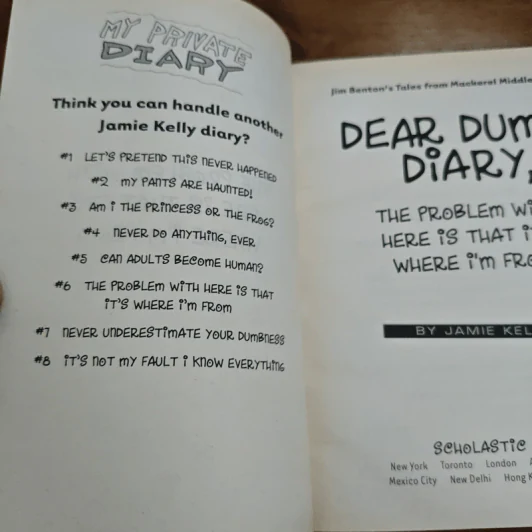 MY PRIVATE
DIARY
Think you can handle another
Jamie Kelly diary?
#1 LET'S PRETEND THIS NEVER HAPPENED
#2 MY PANTS ARE HAUNTED!
#3 AM I THE PRINCESS OR THE FROG?
#4 NEVER DO ANYTHING, EVER
#5 CAN ADULTS BECOME HUMAN?
#6 THE PROBLEM WITH HERE IS THAT
IT'S WHERE I'M FROM
#7 NEVER UNDERESTIMATE YOUR DUMBNESS
#8 IT'S NOT MY FAULT I KNOW EVERYTHING
Jim Benton's Tales from Mackerel Middle
DEAR DUM
DIARY,
THE PROBLEM WI
HERE IS THAT I
WHERE I'M FRO
BY JAMIE KEL
SCHOLASTIC
New York Toronto London
Mexico City New Delhi Hong